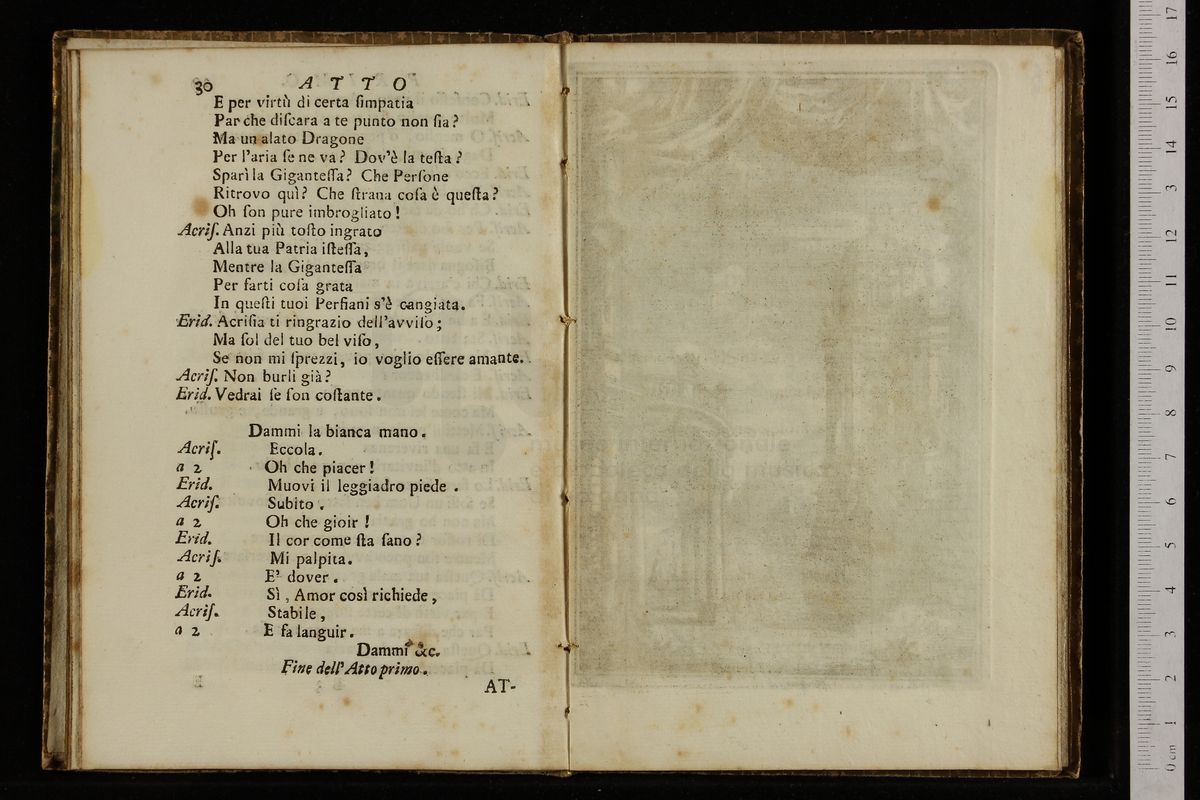 30 ATTO
E per virtù di certa ſimpatia
Par che diſcara a te punto non ſia?
Ma un alato Dragone
Per l'aria ſe ne va? Dov'è la teſta?
Sparì la Giganteſſa? Che Perſone
Ritrovo quì? Che ſtrana coſa è queſta?
Oh ſon pure imbrogliato!
Acriſ. Anzi più toſto ingrato
Alla tua Patria iſteſſa,
Mentre la Giganteſſa
Per farti coſa grata
In queſti tuoi Perſiani s'è cangiata.
Erid. Acriſia ti ringrazio dell'avviſo;
Ma ſol del tuo bel viſo,
Se non mi ſprezzi, io voglio eſſere amante.
Acriſ. Non burli già?
Erid. Vedrai ſe ſon coſtante.
Dammi la bianca mano.
Acriſ. Eccola.
a 2 Oh che piacer!
Erid. Muovi il leggiadro piede.
Acriſ. Subito.
a 2 Oh che gioir!
Erid. Il cor come ſta ſano?
Acriſ. Mi palpita.
a 2 E' dover.
Erid. Sì, Amor così richiede,
Acriſ. Stabile,
a 2 E fa languir.
Dammi &c.
Fine dell'Atto primo.
AT-
0 cm 1 2 3 4 5 6 7 8 9 10 11 12 3 14 15 16 17